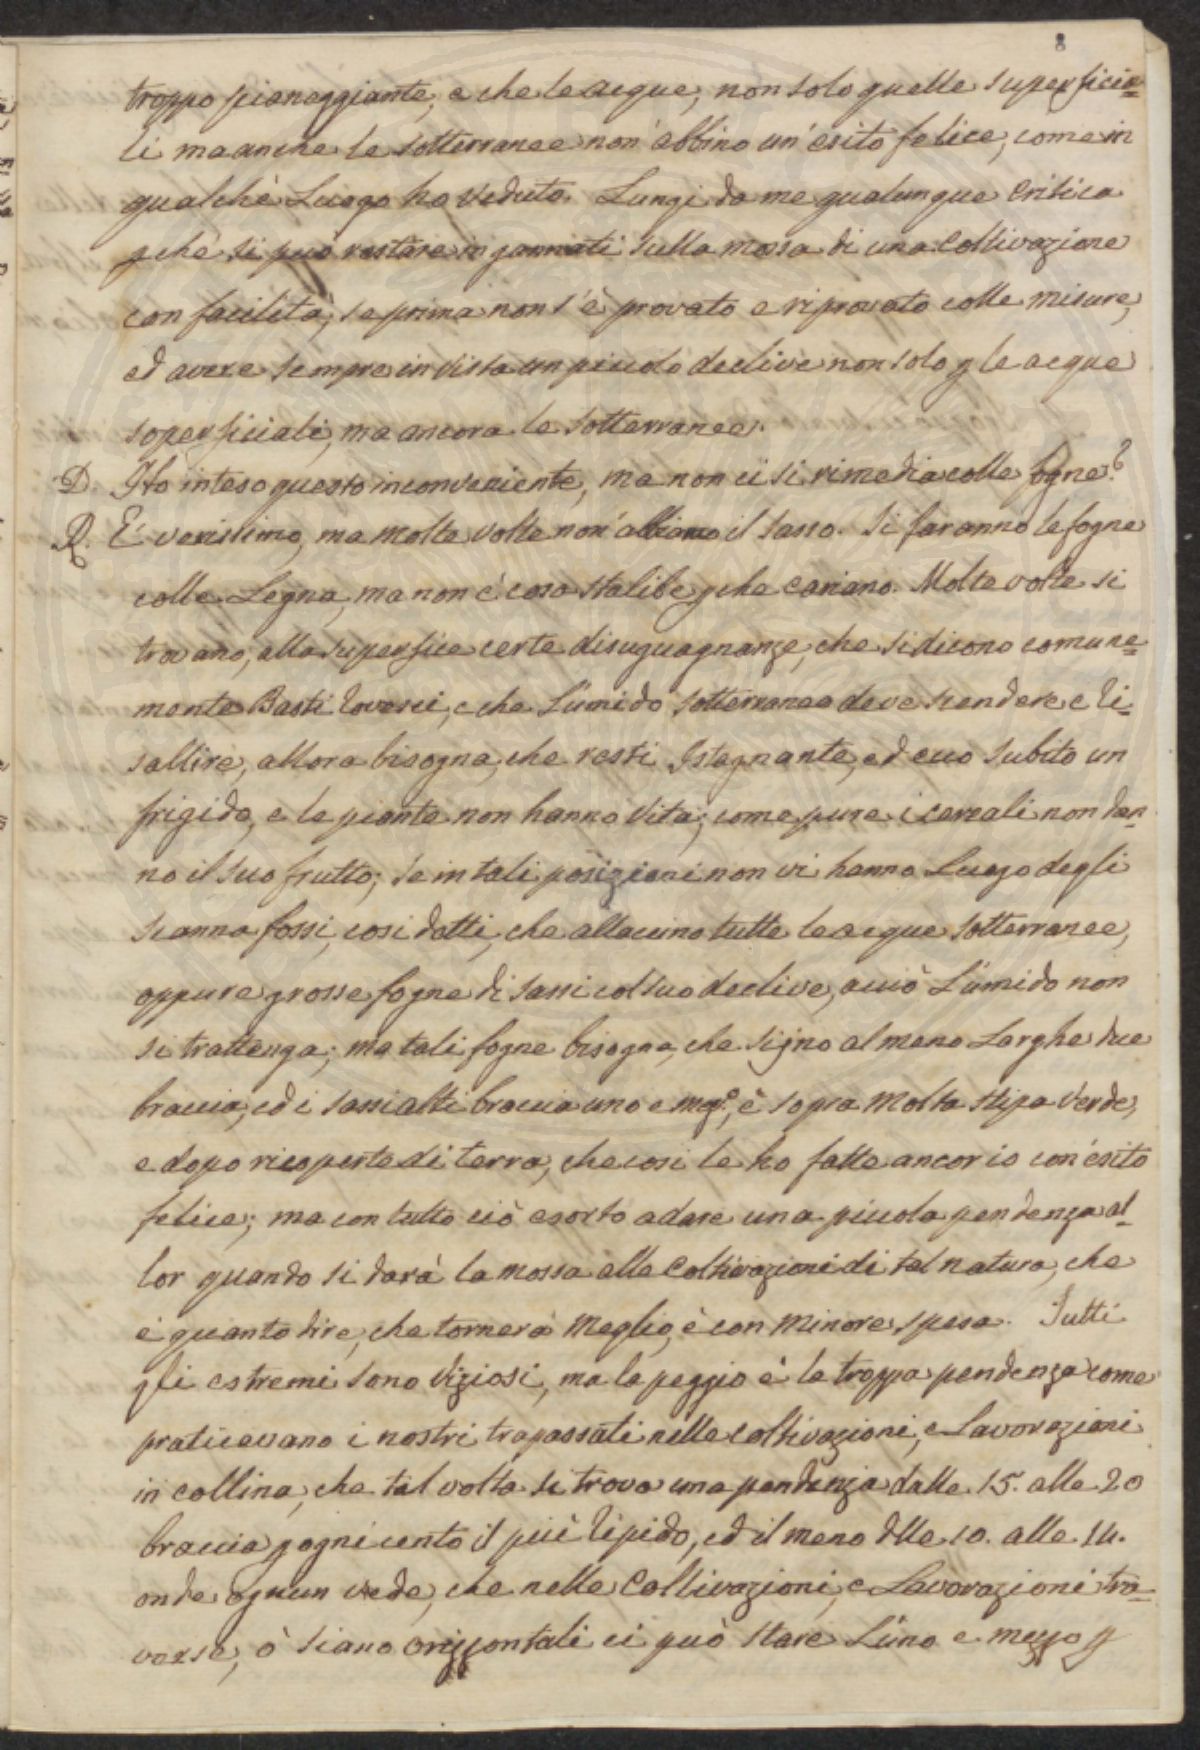 8
troppo pianeggiante, e che le acque, non solo quelle superficia=
li ma anche le sotterranee non abbino un'esito felice, come in
qualche Luogo ho veduto. Lungi da me qualunque Critica
pche si può restare ingannati sulla mossa di una Coltivazione
con facilità, se prima non s'è provato e riprovato colle misure,
ed avere sempre in vista un piccolo declive non solo p le acque
soperficiali, ma ancora le sotterranee.
D. Ho inteso questo inconveniente, ma non ci si rimedia colle fogne?
R. E' verissimo, ma molte volte non abbiamo il sasso. Si faranno le fogne
colle Legna, ma non è cosa stabile pche cariano. Molte volte si
trovano, alla superfice certe disuguagnanze, che si dicono comune=
mente Basti rovesci, e che L'umido sotterraneo deve scendere e ri=
sallire, allora bisogna, che resti Istagnante, ed ecco subito un
frigido, e le piante non hanno Vita; come pure i cereali non dan=
no il suo frutto; se in tali posizioni non vi hanno Luogo degli
scanna fossi, così detti, che allaccino tutte le acque sotterranee,
oppure grosse fogne di sassi col suo declive, acciò L'umido non
si trattenga; ma tali fogne bisogna, che sijno al meno Larghe due
braccia, ed i sassi alti braccia uno e mezº, è sopra molta stipa Verde,
e dopo ricoperte di terra, che così le ho fatte ancor io con esito
felice; ma con tutto ciò esorto a dare una piccola pendenza al=
lor quando si darà la mossa alle Coltivazioni di tal natura, che
è quanto dire, che tornerà Meglio, è con Minore spesa. Tutti
gli estremi sono Viziosi, ma la peggio è la troppa pendenza come
praticavano i nostri trapassati nelle coltivazioni, e Lavorazioni
in collina, che tal volta si trova una pendenza dalle 15. alle 20
braccia p ogni cento il più ripido, ed il meno dlle 10. alle 14.
onde ognun vede, che nelle Coltivazioni, e Lavorazioni tra=
verse, ò siano orizzontali ci può stare L'uno e mezzo p